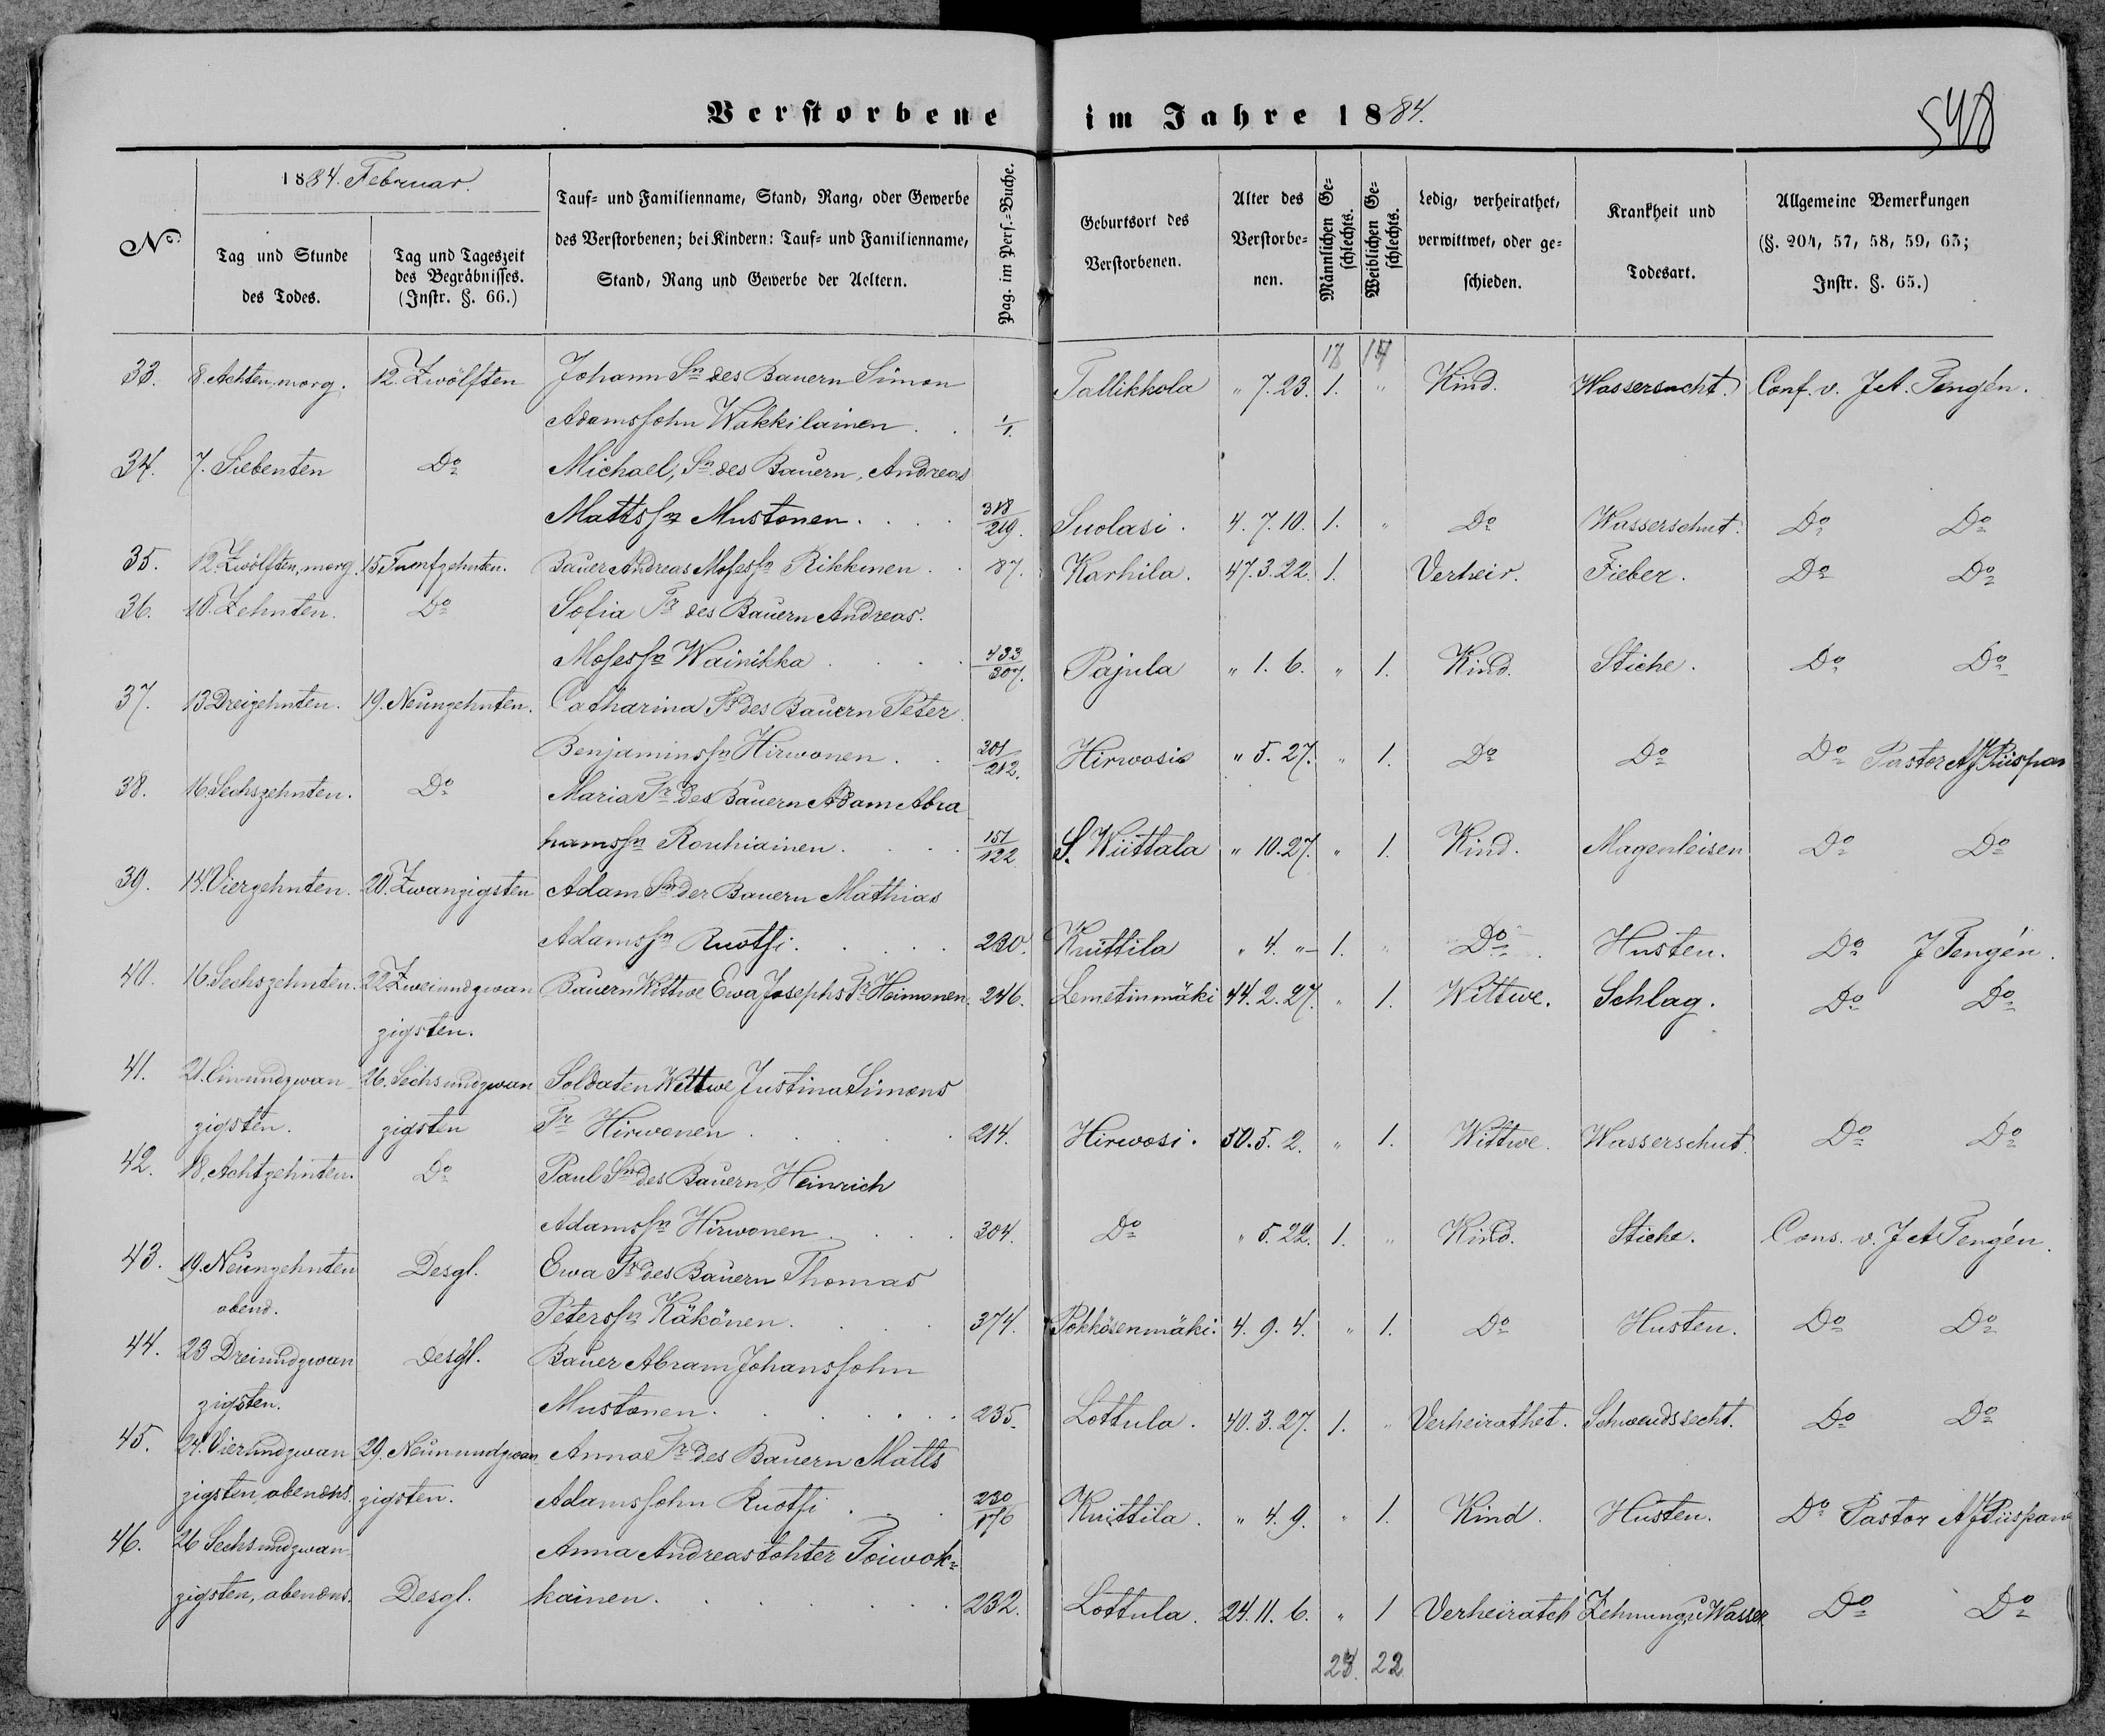 Verstorbene im Jahre 1884.
548
1884. Februar.
No
Tag und Stunde des Todes.
Tag und Tageszeit des Begräbnisses. (Instr. §. 66.)
Tauf= und Familienname, Stand, Rang, oder Gewerbe des Verstorbenen; bei Kindern: Tauf= und Familienname, Stand, Rang und Gewerbe der Aeltern.
Pag. im Pers.=Buche.
Geburtsort des Verstorbenen.
Alter des Verstorbe=nen.
Männlichen Ge=schlechts.
Weiblichen Ge=schlechts.
Ledig, verheirathet, verwittwet, oder ge=schieden.
Krankheit und Todesart.
Allgemeine Bemerkungen (§. 204, 57, 58, 59, 63; Instr. §. 65.)
33. 8. Achten, morg. 12. Zwölften Johann Sn des Bauern Simon Tallikkola " 7. 23. 1. " Kind. Wassersucht. Conf. v. J A. Tengén.
Adamssohn Wakkilainen . . 1/1.
34. 7. Siebenten Do Michael, Sn des Bauern, Andreas
Mattssn Mustonen . . . 318/219. Suolasi. 4. 7. 10. 1. " Do Wasserschut. Do Do
35. 12. Zwölften, morg. 15. Funfzehnten. Bauer Andreas Mosessn Rikkinen . . 187. Karhila. 47. 3. 22. 1. Verheir. Fieber. Do Do
36. 10. Zehnten. Do Sofia Tr des Bauern Andreas.
Mosessn Wainikka . . . . 433/307. Pajula " 1. 6. " 1. Kind. Stiche. Do Do
37. 13 Dreizehnten. 19. Neunzehnten. Catharina Tr des Bauern Peter
Benjaminssn Hirwonen . . 301/212. Hirwosi " 5. 27. " 1. Do Do Do Pastor A J Piispan
38. 16. Sechszehnten. Do Maria Tr des Bauern Adam Abra
hamssn Rouhiainen . . . . 151/122 S. Wiittala " 10. 27. " 1. Kind. Magenleisen Do Do
39. 14. Vierzehnten. 20. Zwanzigsten Adam Sn der Bauern Mathias
Adamssn Ruotsi . . . . 230. Kuttila " 4. "– 1. " Do Husten. Do J Tengén.
40. 16. Sechszehnten. 22 Zweiundzwan Bauern Wittwe Ewa Josephs Tr Heimonen. 246. Lemetinmäki 44. 2. 27. " 1. Wittwe. Schlag. Do Do
zigsten.
41. 21. Einundzwan 26. Sechsundzwan Soldaten Wittwe Justina Simons
zigsten. zigsten Tr Hirwonen . . . . . 214. Hirwosi. 50. 5. 2. " 1. Wittwe. Wasserschut. Do Do
42. 18, Achtzehnten. Do Paul Sn des Bauern, Heinrich
Adamssn Hirwonen . . . . 304. Do " 5. 22. 1. " Kind. Stiche. Cons. v. J A Tengén.
43. 19. Neunzehnten Desgl. Ewa Tr des Bauern Thomas
abend. Peterssn Käkönen . . . . 374. Pokkösenmäki. 4. 9. 4. " 1. Do Husten. Do Do
44. 23 Dreiundzwan Desgl. Bauer Abram Johanssohn
zigsten. Mustonen . . . . . 235. Lottula. 40. 3. 27. 1. " Verheirathet. Schwendssecht. Do Do
45. 24. Vierundzwan 29. Neunundzwan Anna Tr des Bauern Matts
zigsten, abends. zigsten. Adamssohn Ruotsi . . . 230/176 Kuittila. " 4. 9. " 1. Kind. Husten. Do Pastor A J Piispan
46. 26 Sechsundzwan Anna Andreastohter Toiwok=
zigsten, abends. Desgl. kainen . . . . . . . 232. Lottula. 24. 11. 6. " 1 Verheirateh Zehrung u Wasser Do Do
22